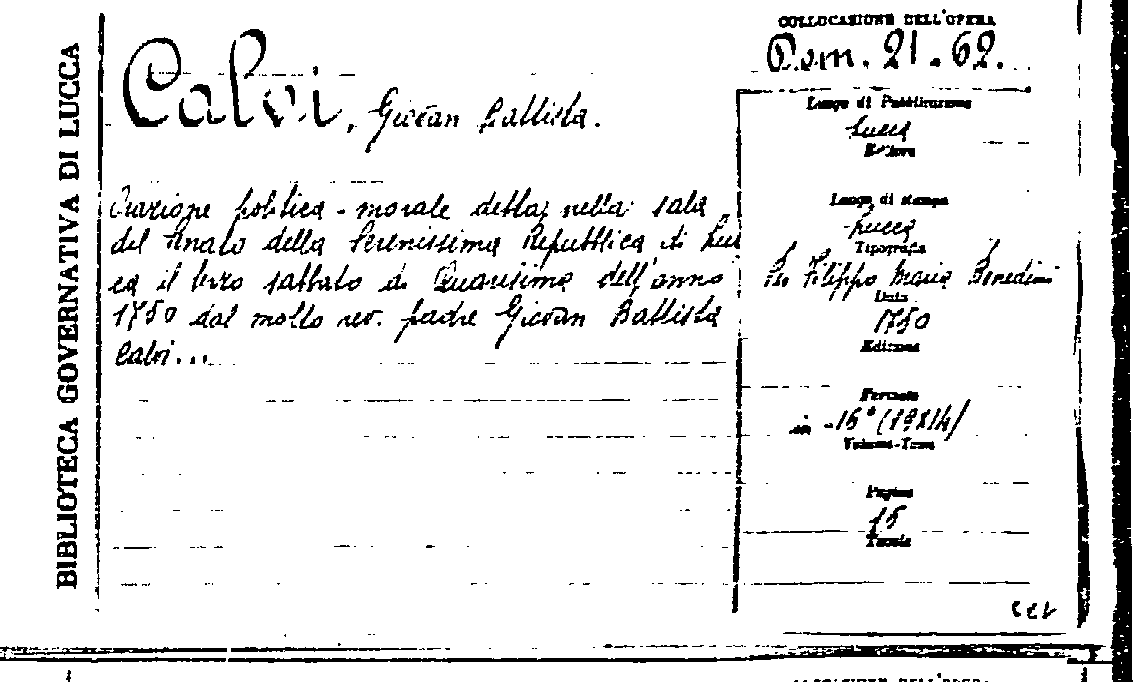 BIBLIOTECA GOVERNATIVA DI LUCCA
Calvi, Giovan Battista.
Orazione politica-morale detta nella sala
del Senato della Serenissima Repubblica di Luc
ca il terzo sabbato di Quaresima dell'anno
1750 dal molto rev. padre Giovan Battista
Calvi...
COLLOCAZIONE DELL'OPERA
Dom. 21.62.
Luogo di Pubblicazione
Lucca
Editore
Luogo di stampa
Lucca
Tipografia
Filippo Maria Benedini
Data
1750
Edizione
Formato
in-16° (19X14)
Volume-Tomo
Pagine
15
Tavole
COLLOCAZIONE DELL'OPERA